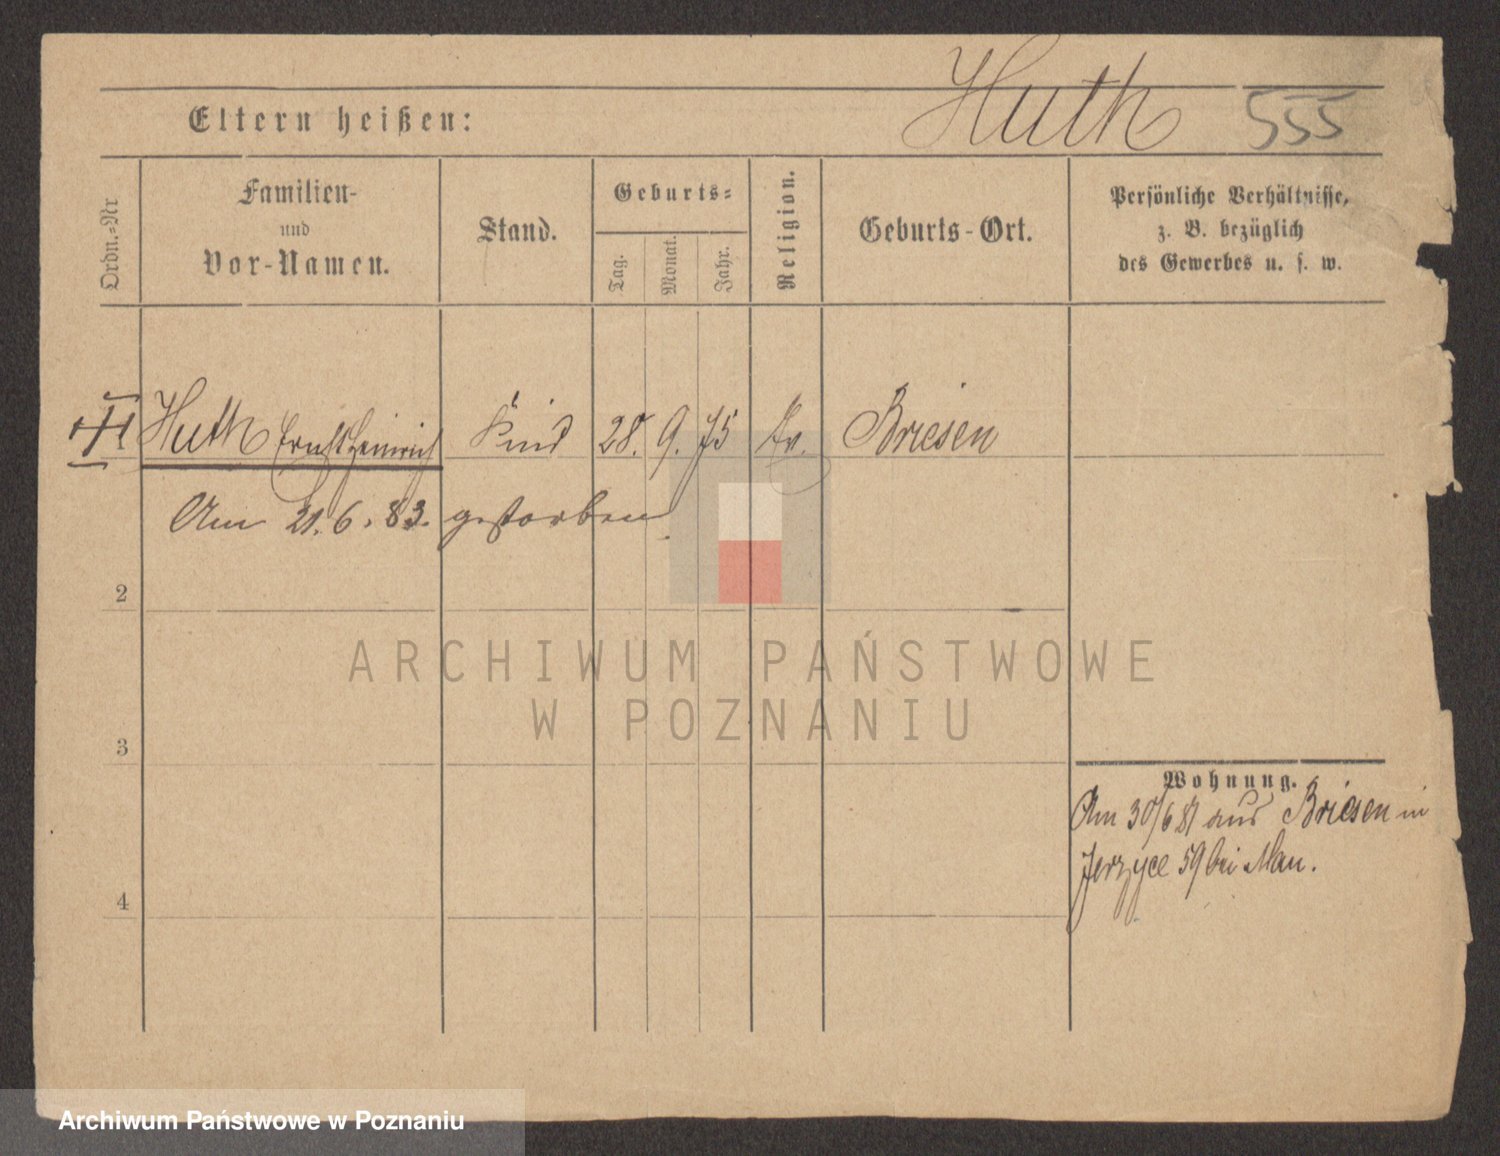 Huth 555
Eltern heißen:
Ordn.=Nr
Familien-
und
Vor-Namen.
Stand.
Geburts=
Tag.
Monat.
Jahr.
Religion.
Geburts-Ort.
Persönliche Verhältnisse,
z. B. bezüglich
des Gewerbes u. s. w.
Huth Ernst Heinrich Kind 28. 9. 75 Ev. Briesen
Am 21. 6. 83. gestorben
2
3
4
Wohnung.
Am 30/6 81 aus Briesen in
Jerzyce 59 bei Man.
ARCHIWUM PAŃSTWOWE
W POZNANIU
Archiwum Państwowe w Poznaniu